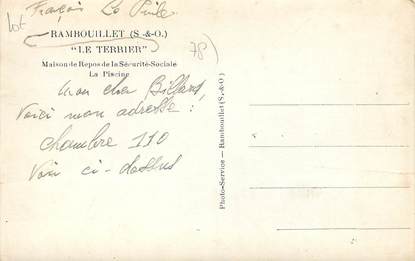 lot
RAMBOUILLET (S.-&-O.)
"LE TERRIER"
78
Maison de Repos de la Sécurité-Sociale
La Piscine
Mon cher
Voici mon adresse :
chambre 110
Voir ci-dessus
Photo-Service — Rambouillet (S.-&-O.)